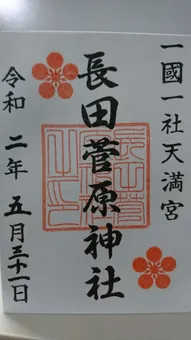 一國一社天満宮
長田菅原神社
令和二年五月三十一日